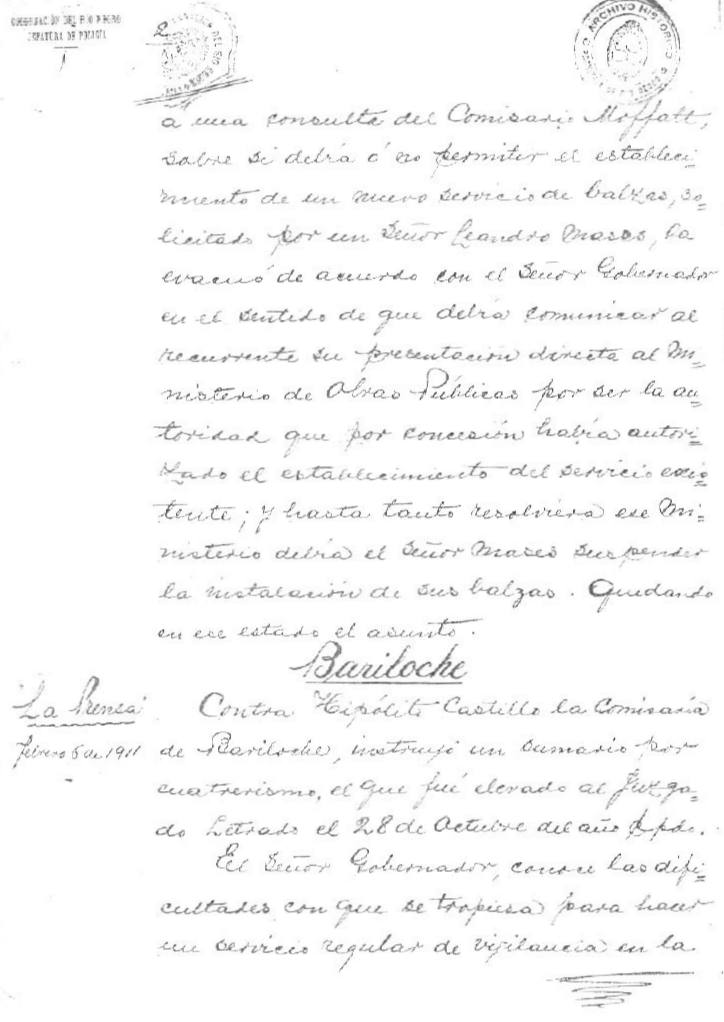 GOBERNACIÓN DEL RÍO NEGRO
JEFATURA DE POLICÍA
ARCHIVO HISTORICO
a una consulta del Comisario Moffatt,
sobre si debía ó no permitir el estableci=
miento de un nuevo servicio de balzas, so=
licitado por un Señor Leandro Mases, la
evacuó de acuerdo con el Señor Gobernador
en el sentido de que debía comunicar al
recurrente su presentación directa al Mi=
nisterio de Obras Públicas por ser la au=
toridad que por concesión había autori=
zado el establecimiento del servicio exis=
tente; y hasta tanto resolviera ese Mi=
nisterio debía el Señor Mases suspender
la instalación de sus balzas. Quedando
en ese estado el asunto.
Bariloche
"La Prensa"
febrero 6 de 1911
Contra Hipólito Castillo la Comisaría
de Bariloche, instruyó un sumario por
cuatrerismo, el que fué elevado al Juzga=
do Letrado el 28 de Octubre del año ppdo.
El Señor Gobernador, conoce las difi=
cultades con que se tropiesa para hacer
un servicio regular de vigilancia en la